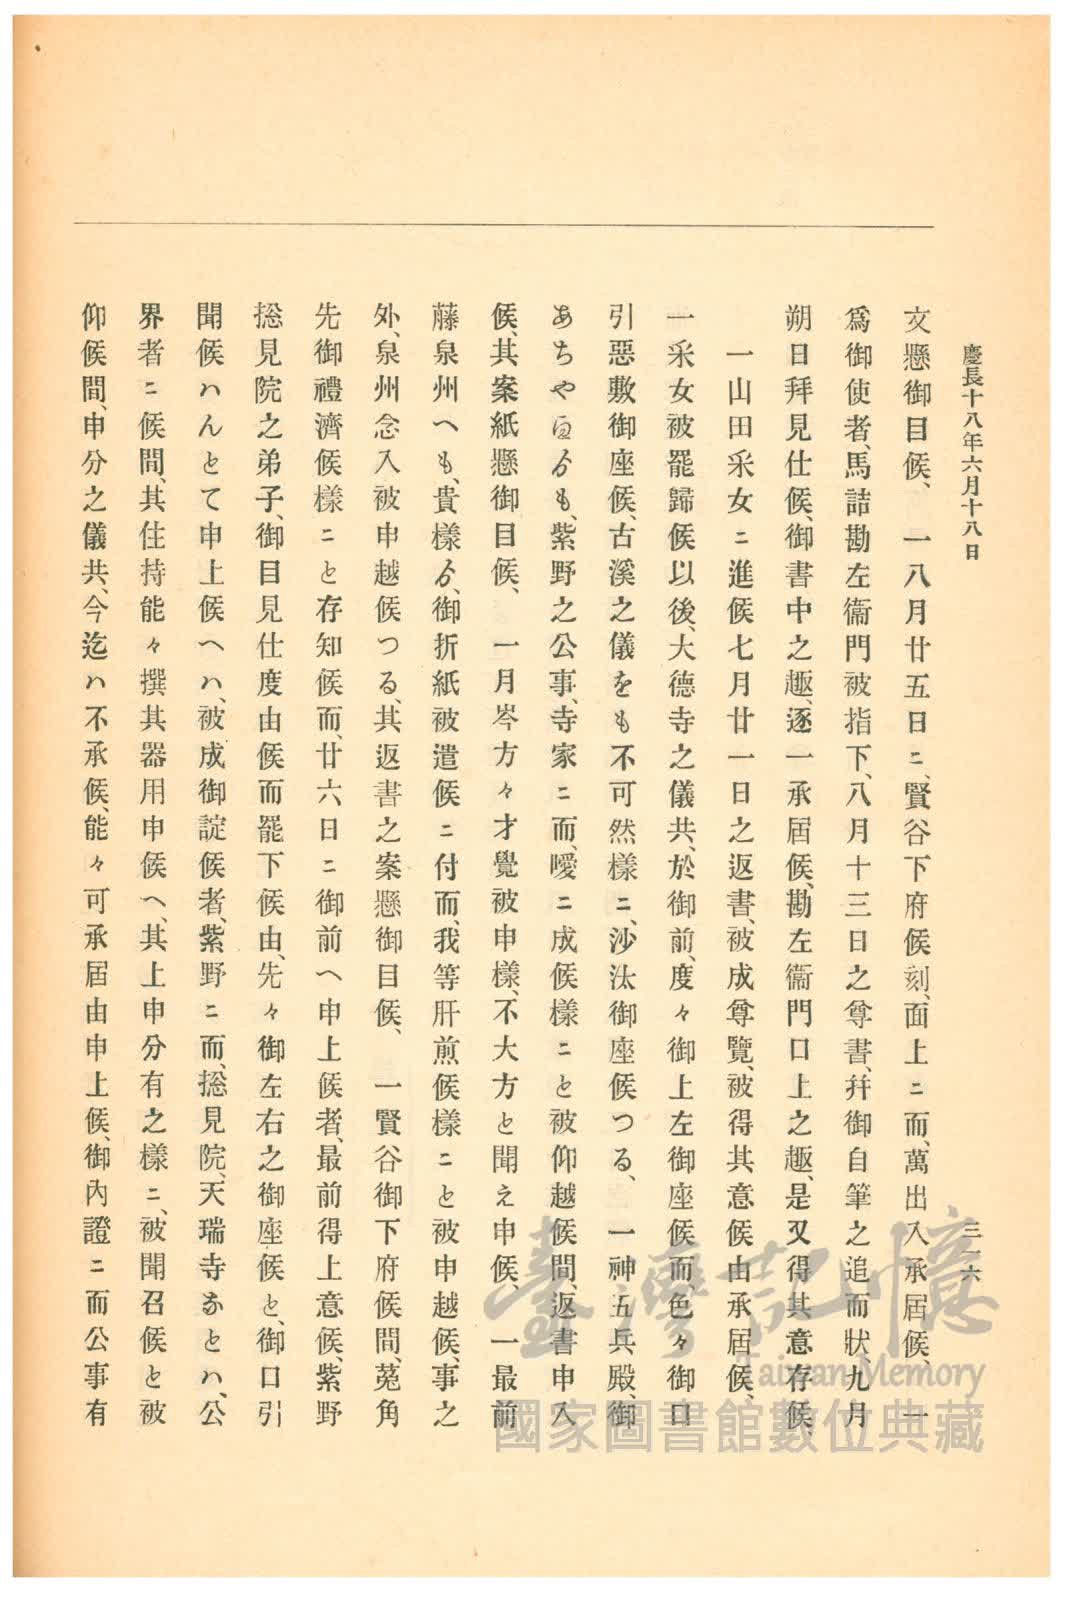 慶長十八年六月十八日
三一六
文懸御目候、　一八月廿五日ニ、賢谷下府候刻、面上ニ而、萬出入承屆候、一
爲御使者、馬詰勘左衞門被指下、八月十三日之尊書、幷御自筆之追而狀、九月
朔日拜見仕候、御書中之趣、逐一承屆候、勘左衞門口上之趣、是又得其意存候、
一山田采女ニ進候七月廿一日之返書、被成尊覽、被得其意候由承屆候、
一采女被罷歸候以後、大德寺之儀共、於御前、度々御上左御座候而、色々御口
引惡敷御座候、古溪之儀をも不可然樣ニ、沙汰御座候つる、　一神五兵殿、御
あちやゟも、紫野之公事、寺家ニ而、噯ニ成候樣ニと被仰越候間、返書申入
候、其案紙懸御目候、　一月岑方々才覺被申樣、不大方と聞え申候、　一最前
藤泉州へも、貴樣ゟ、御折紙被遣候ニ付而、我等肝煎候樣ニと被申越候、事之
外、泉州念入被申越候つる、其返書之案懸御目候、　一賢谷御下府候間、菟角
先御禮濟候樣ニと存知候而、廿六日ニ御前へ申上候者、最前得上意候、紫野
捴見院之弟子、御目見仕度由候而罷下候由、先々御左右之御座候と、御口引
聞候ハんとて申上候ヘハ、被成御諚候者、紫野ニ而、捴見院、天瑞寺なとハ、公
界者ニ候間、其住持能々撰其器用申候へ、其上申分有之樣ニ、被聞召候と被
仰候間、申分之儀共、今迄ハ不承候、能々可承屆由申上候、御內證ニ而公事有
臺灣記憶
Taiwan Memory
國家圖書館數位典藏